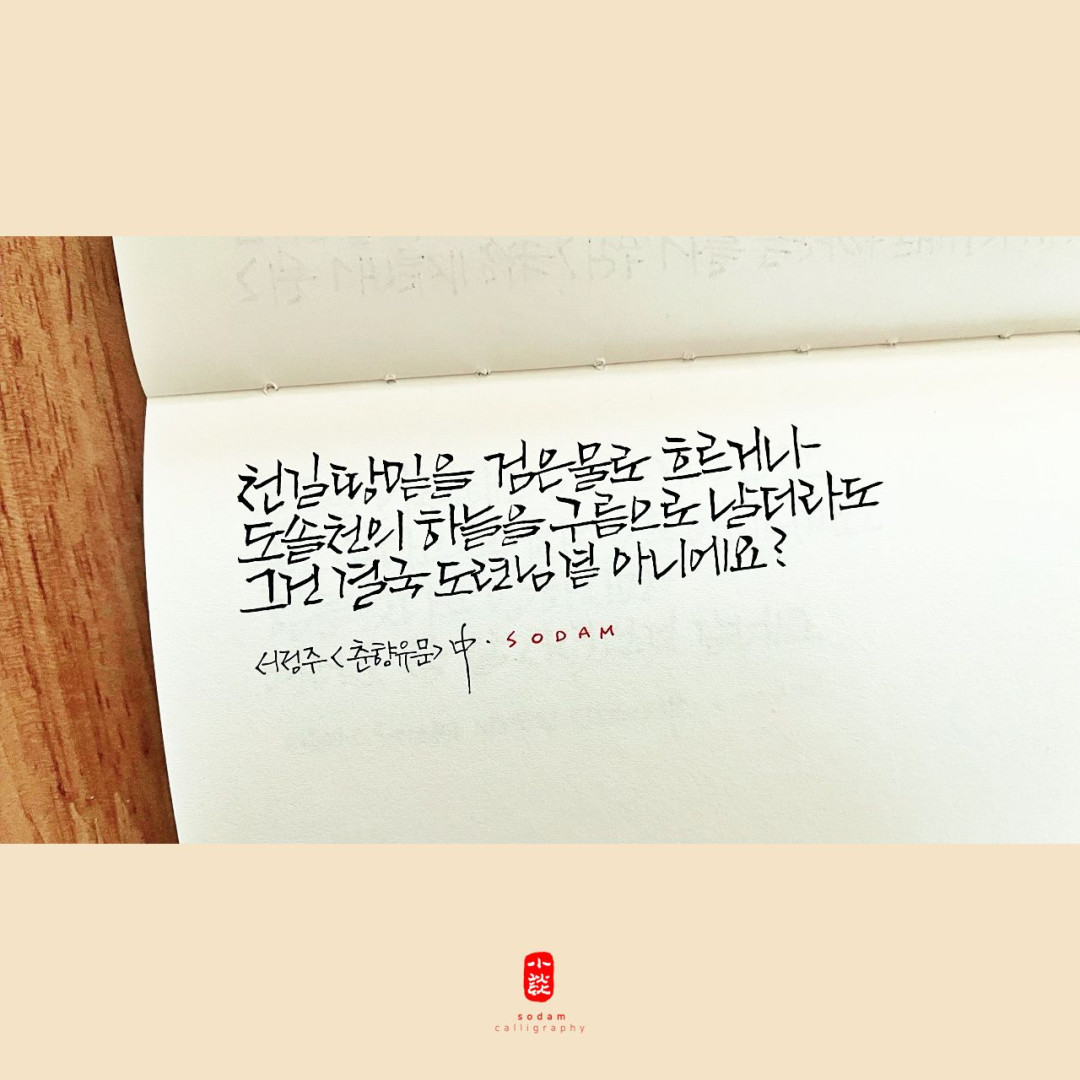 천길 땅밑을 검은물로 흐르거나
도솔천의 하늘을 구름으로 날더라도
그건 결국 도련님 곁 아니에요?
서정주 <춘향유문> 中 · SODAM
小談
sodam
calligraphy